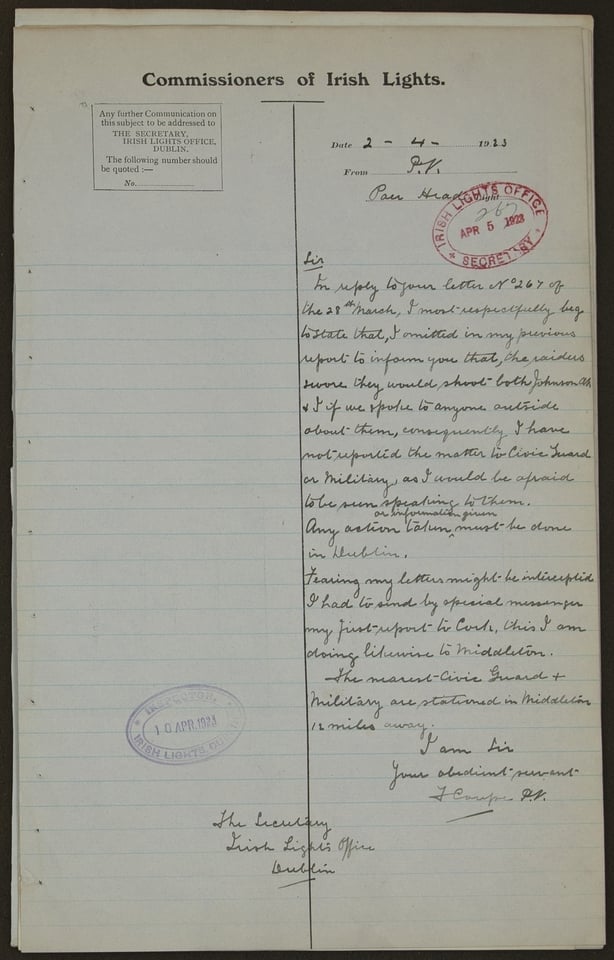 Commissioners of Irish Lights.
Any further Communication on
this subject to be addressed to
THE SECRETARY,
IRISH LIGHTS OFFICE,
DUBLIN.
The following number should
be quoted :—
No.
Date 2 - 4 - 1923
From P.K.
Poer Head Light
IRISH LIGHTS OFFICE
267
APR 5 1923
SECRETARY
Sir
In reply to your letter No 267 of
the 28th March, I most respectfully beg
to state that, I omitted in my previous
report to inform you that, the raiders
swore they would shoot both Johnson AK
& I if we spoke to anyone outside
about them, consequently I have
not reported the matter to Civic Guard
or Military, as I would be afraid
to be seen speaking to them.
or information given
Any action taken ^ must be done
in Dublin.
Fearing my letters might be intercepted
I had to send by special messenger
my first report to Cork, this I am
doing likewise to Middleton.
The nearest Civic Guard &
Military are stationed in Middleton
12 miles away.
I am Sir
Your obedient servant
P.K.
INSPECTOR,
10 APR. 1923
IRISH LIGHTS
The Secretary
Irish Lights Office
Dublin